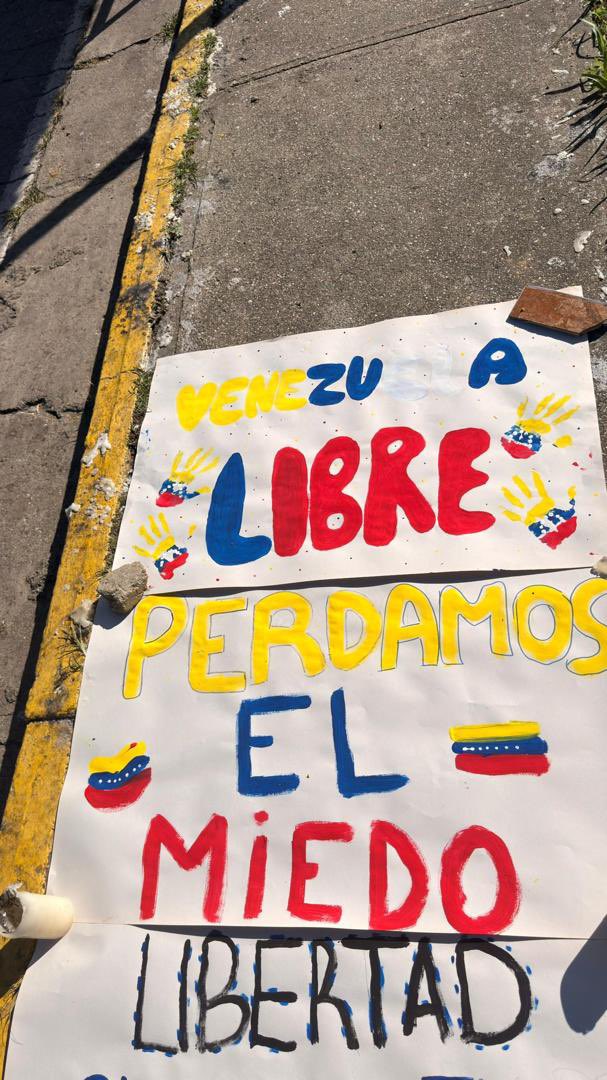 VENEZUELA
LIBRE
PERDAMOS
EL
MiEDO
LIBERTAD